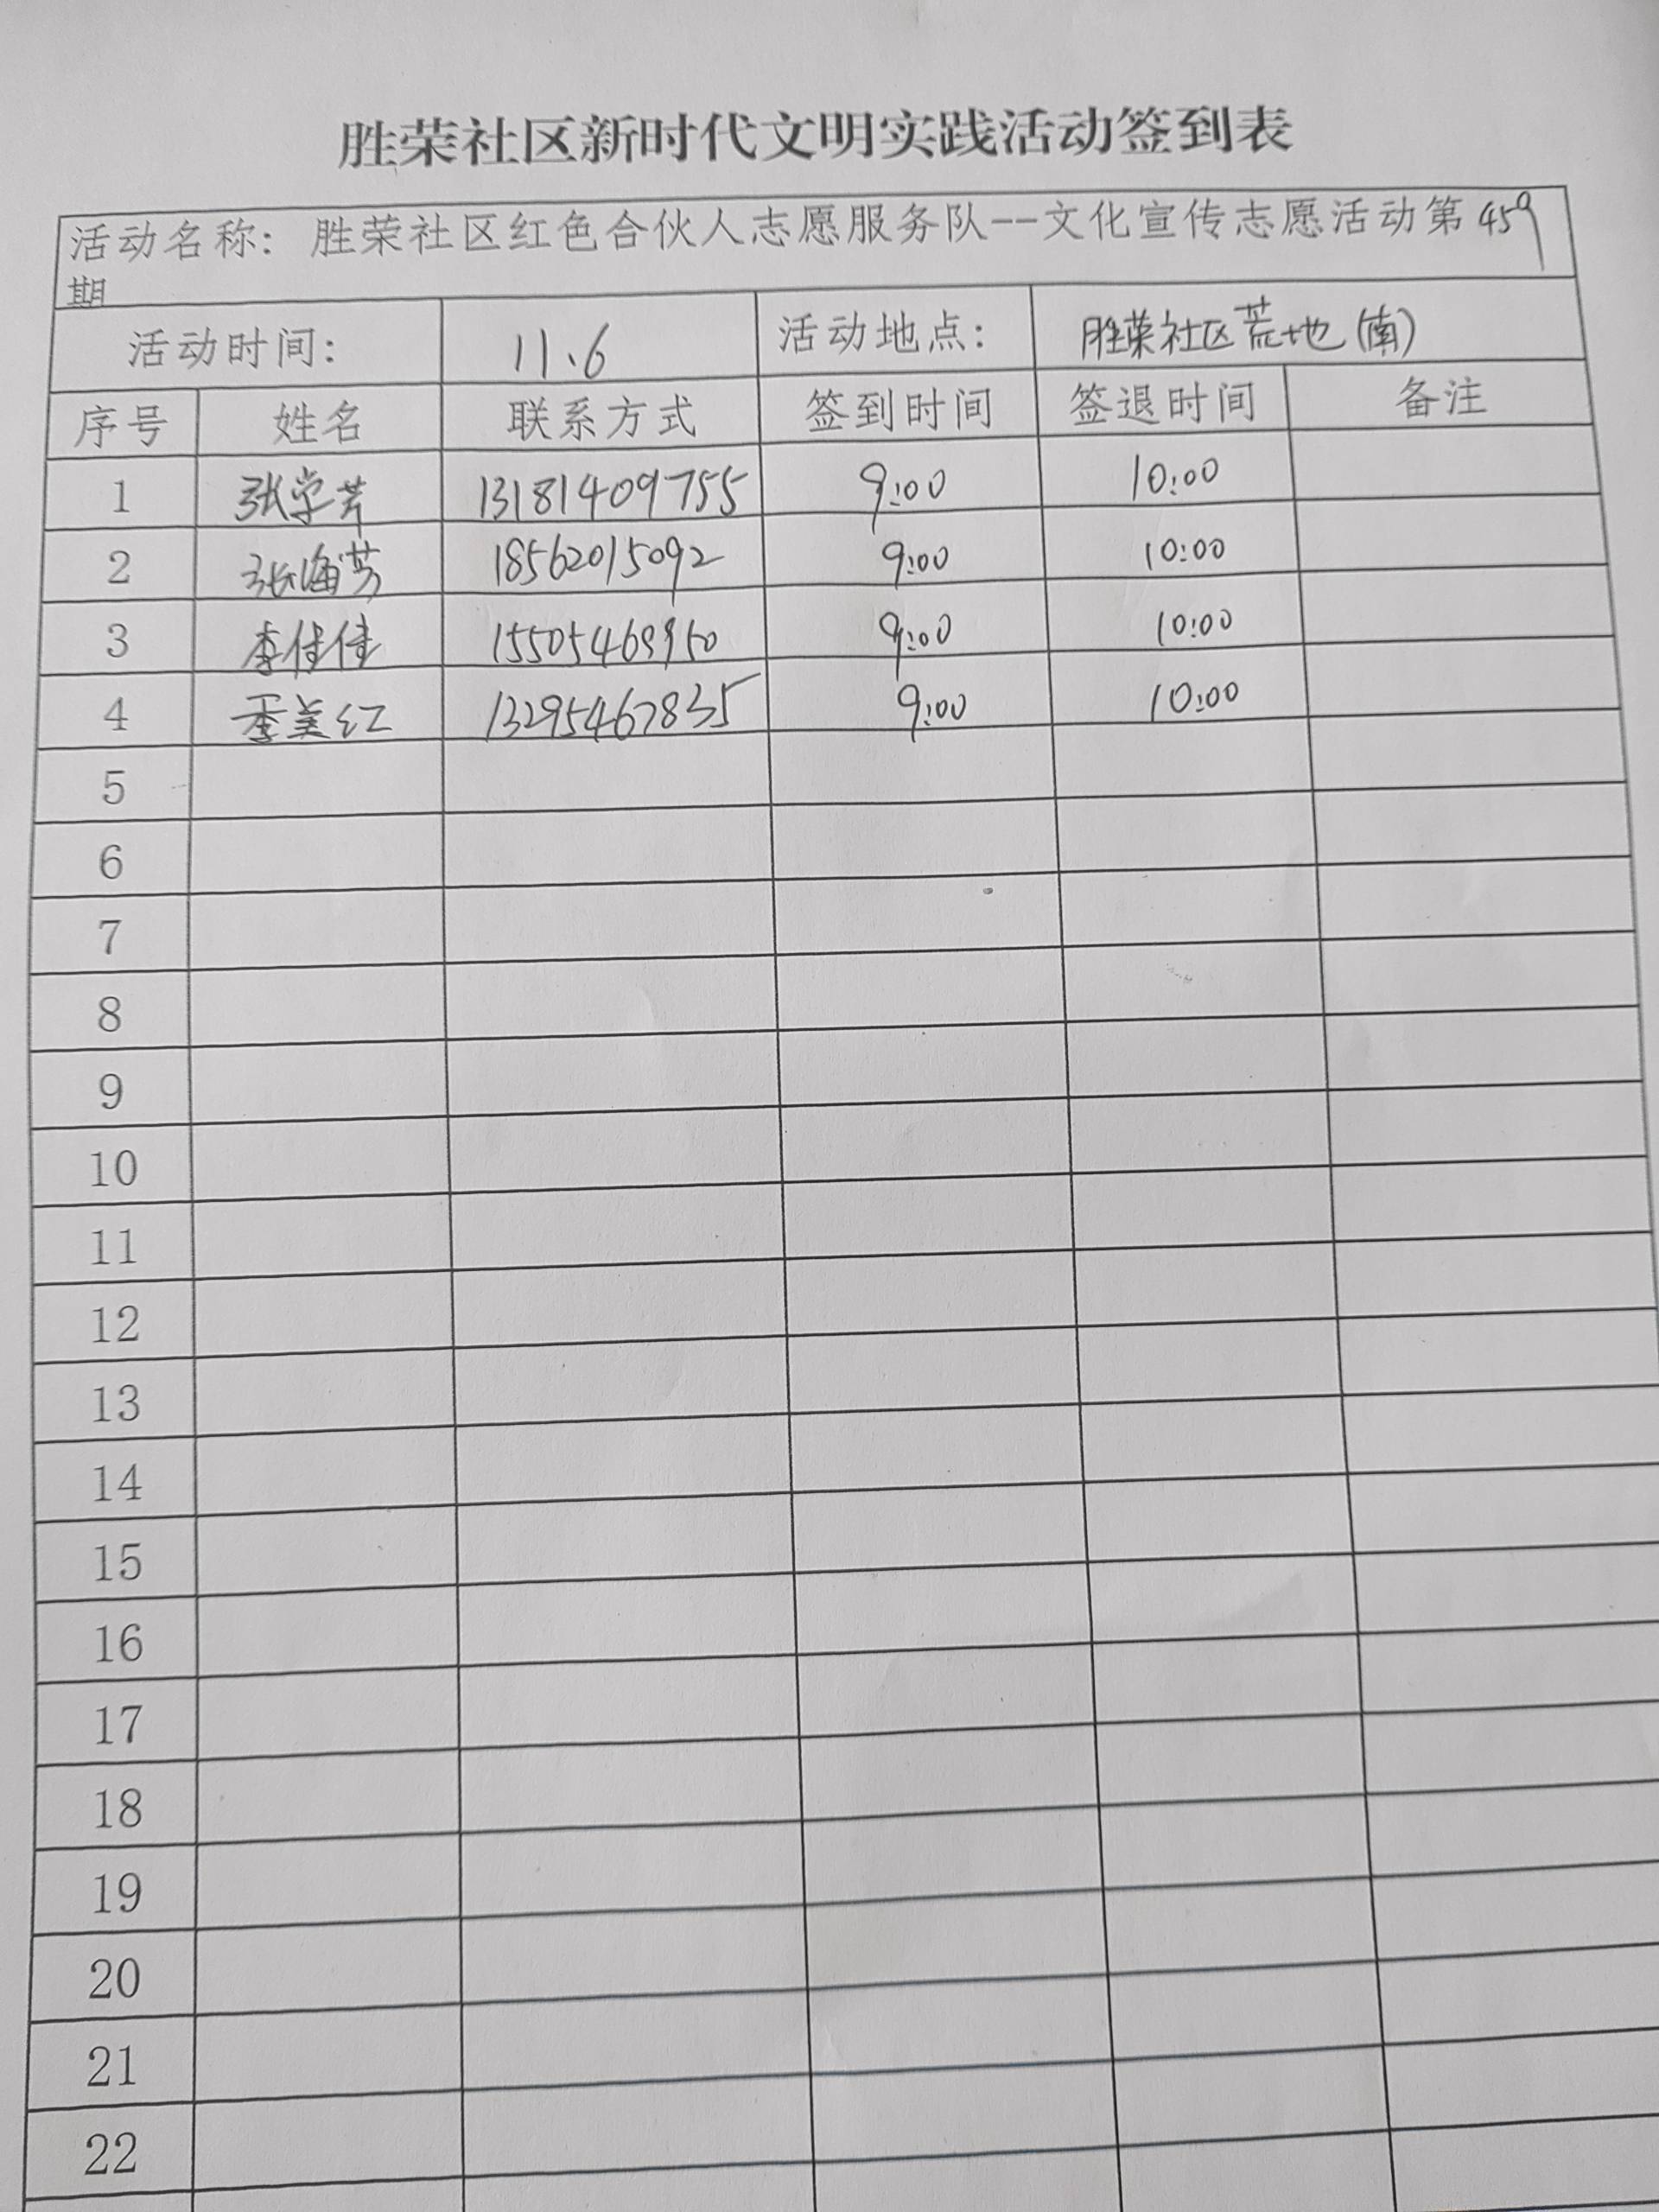 胜荣社区新时代文明实践活动签到表
活动名称：胜荣社区红色合伙人志愿服务队--文化宣传志愿活动第459
期
活动时间： 11.6 活动地点： 胜荣社区荒地(南)
序号 姓名 联系方式 签到时间 签退时间 备注
1 张学芹 13181409755 9:00 10:00
2 张海芳 18562015092 9:00 10:00
3 李佳佳 9:00 10:00
4 季美红 13295467835 9:00 10:00
5
6
7
8
9
10
11
12
13
14
15
16
17
18
19
20
21
22